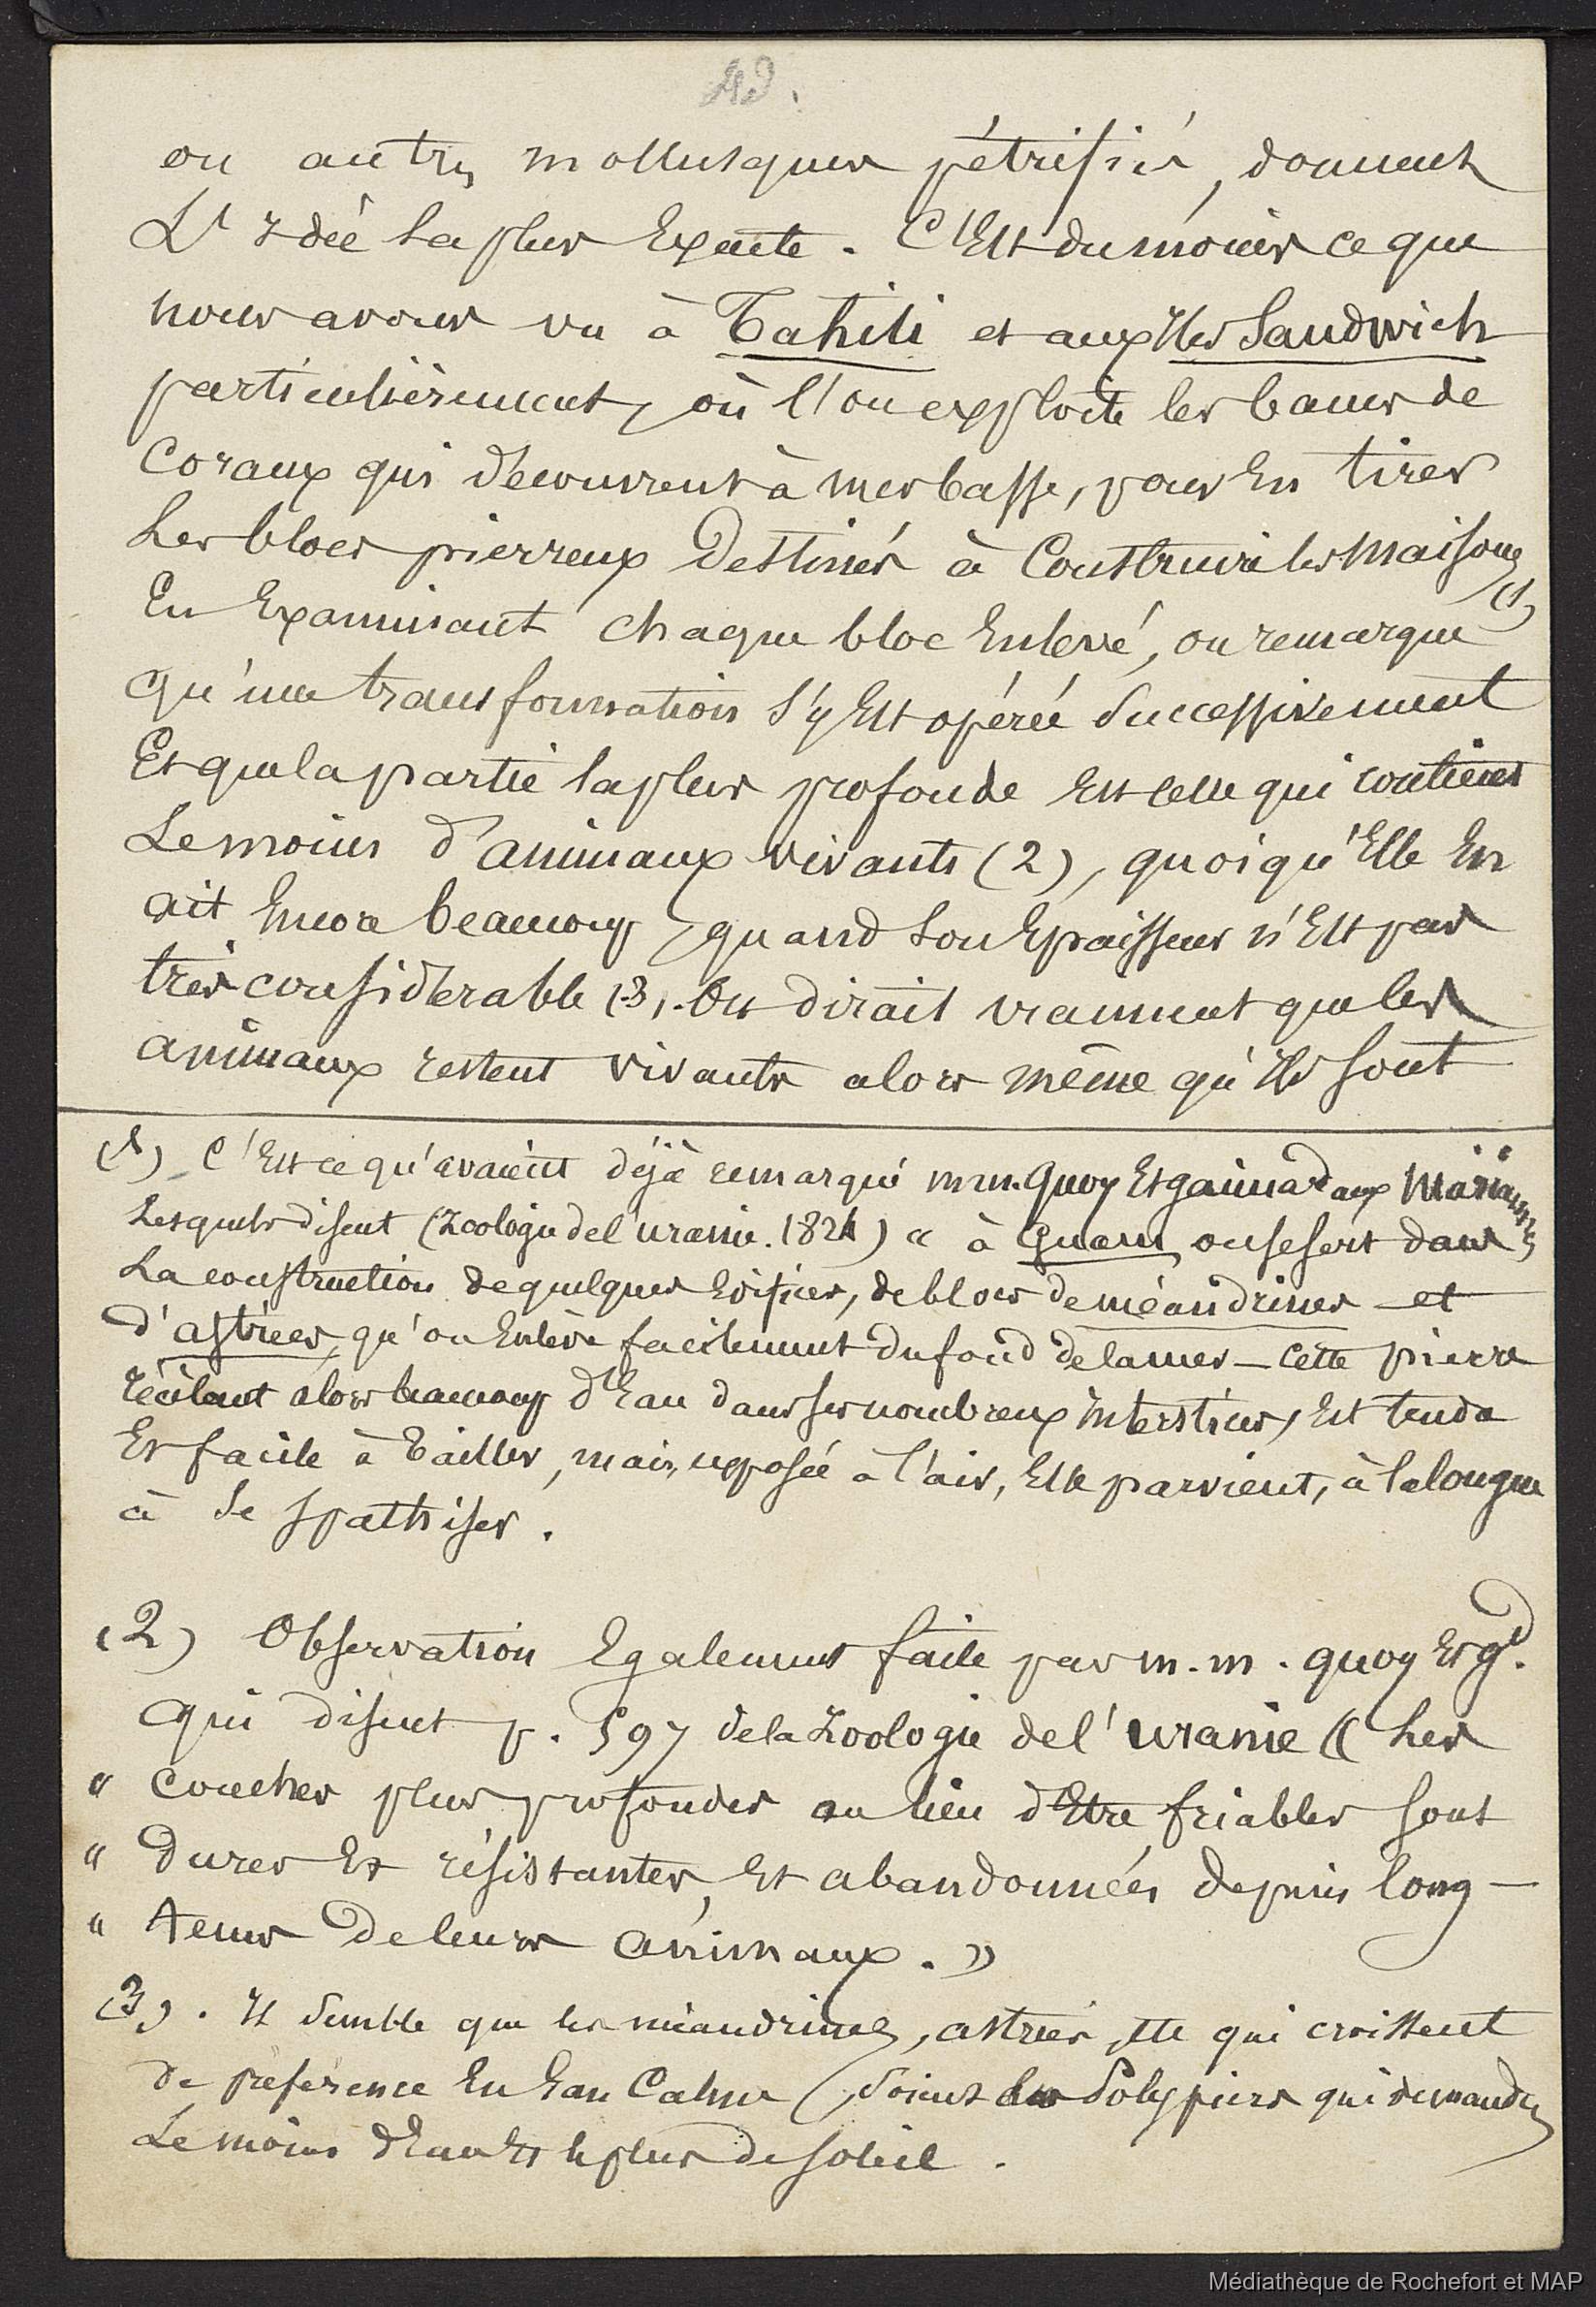 ou autres mollusques pétrifiés, donnent
L'Idée la plus Exacte. C'Est du moins ce que
nous avons vu à Tahiti et aux Iles Sandwich
particulièrement, où l'on exploite les bancs de
Coraux qui découvrent à mer basse, pour En tirer
Les blocs pierreux Destinés à Construire les Maisons (1)
En Examinant chaque bloc Enlevé, on remarque
qu'une transformation s'y Est opérée Successivement
Et que la partie la plus profonde Est celle qui contient
Le moins d'animaux vivants (2), quoiqu'Elle En
ait Encore beaucoup, quand son Epaisseur n'Est pas
très considérable (3). On dirait vraiment que les
animaux restent vivants alors même qu'Ils sont
(1) C'Est ce qu'avaient déjà remarqué m.m. Quoy Et gaimard aux Mariannes
Lesquels disent (Zoologie de l'uranie. 1824) « à Guam, on se sert dans
La construction de quelques Edifices, de blocs de méandrines et
d'astrées, qu'on Enlève facilement du fond de la mer – Cette pierre
récélant alors beaucoup d'Eau dans ses nombreux interstices, Est tendre
Et facile à Tailler, mais, exposée à l'air, Elle parvient, à la longue
à Se spathiser.
(2) Observation Egalement faite par m.m. quoy Et gd.
qui disent p. 597 de la Zoologie de l'uranie « Les
" couches plus profondes au lieu d'Etre friables sont
" Dures Et résistantes, Et abandonnées depuis long-
" tems De leurs animaux. »
(3). Il Semble que les méandrines, astrées, etc qui croissent
de préférence En Eau Calme, Soient les Polypiers qui demandent
Le moins d'Eau Et le plus de soleil.
Médiathèque de Rochefort et MAP